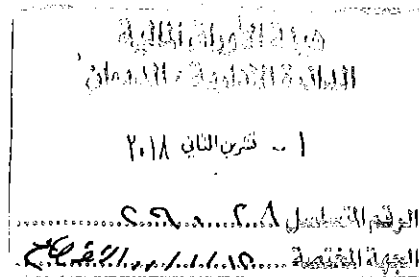 هيئة الأوراق المالية
الدائرة الإدارية / الديوان
١ -- تشرين الثاني ٢٠١٨
الرقم المتسلسل
الجهة المختصة الإفصاح